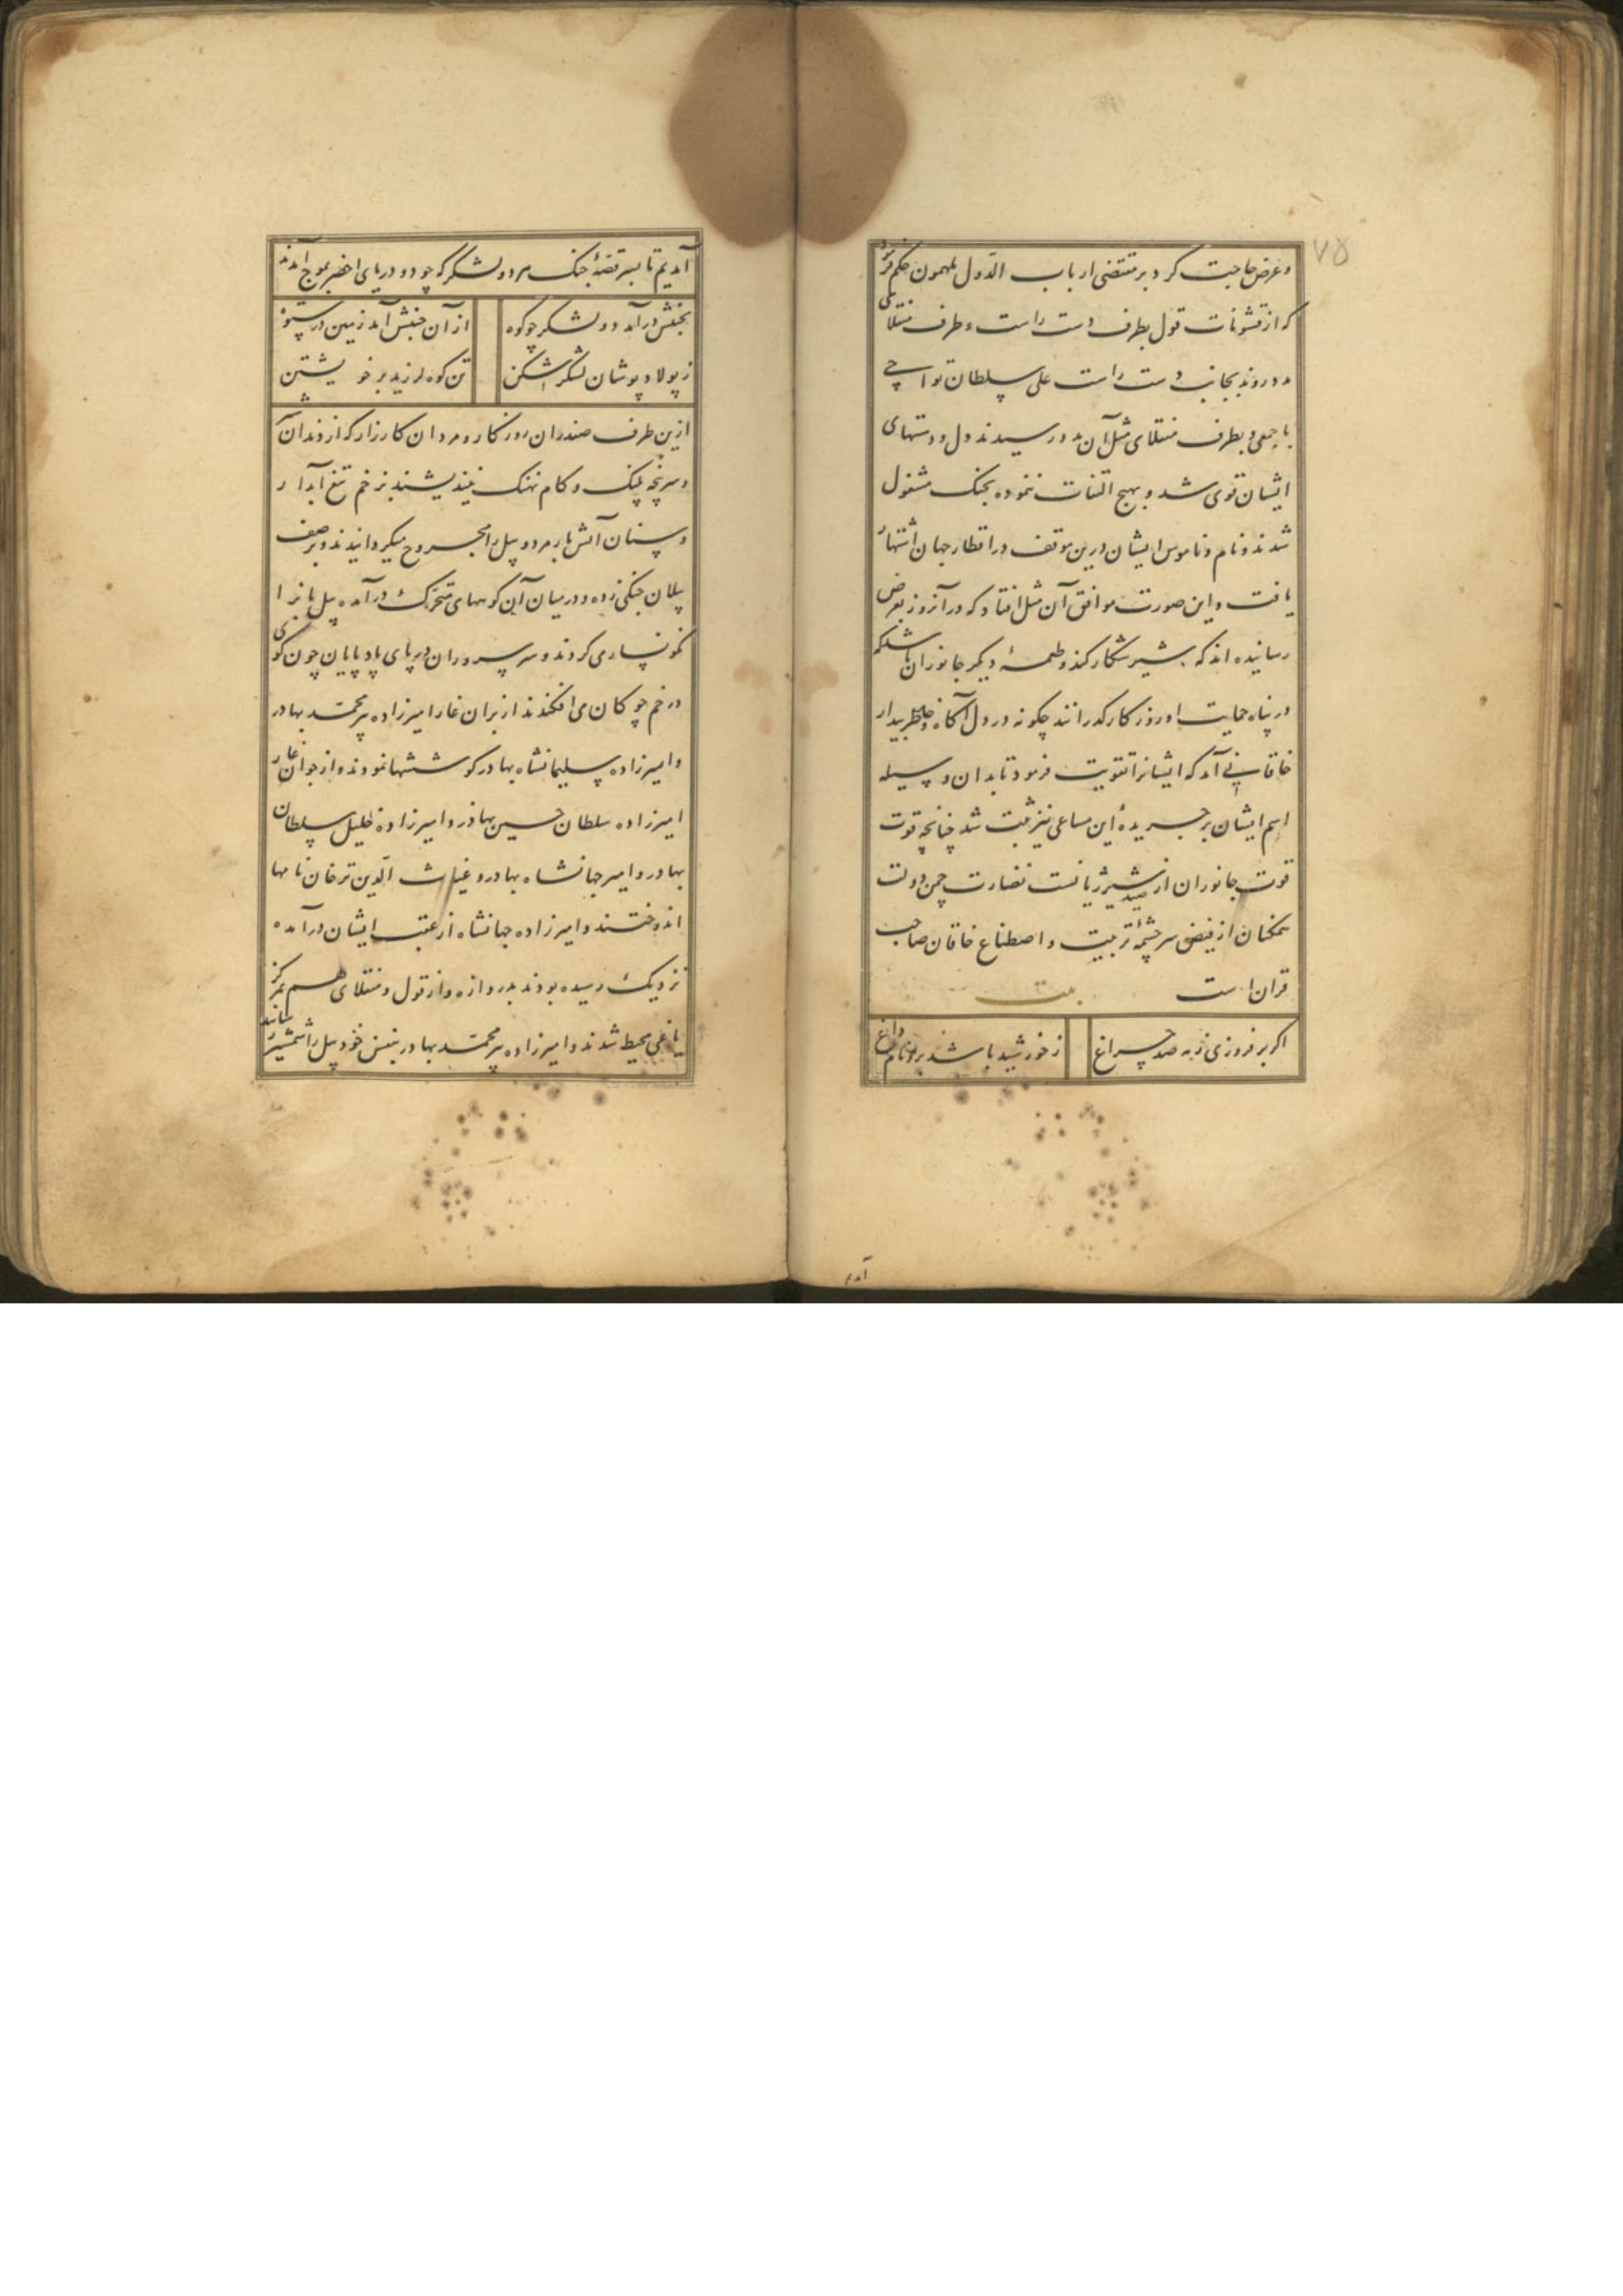 ۷۵
و عرض حاجت کرد بر مقتضی ارباب الدول ملهمون حکم فرمود
که از قشونات قول بطرف دست راست و طرف منقلای
مدد روند بجانب دست راست علی سلطان تواچی
با جمعی و بطرف منقلای مثل آن مدد رسیدند دل و دستهای
ایشان قوی شد و بهیچ التفات ننموده بجنک مشغول
شدند و نام و ناموس ایشان درین موقف در اقطار جهان اشتهار
یافت و این صورت موافق آن مثل افتاد که در آنروز بعرض
رسانیده اند که شیر شکار کند و طعمهٔ دیکر جانوران باشد که
در پناه حمایت او روزکار کذرانند چکونه در دل آکاه و خاطر بیدار
خاقانی آمد که ایشانرا تقویت فرمود تا بدان وسیله
اسم ایشان بر جریدهٔ این مساعی نیز ثبت شد چنانچه قوت
قوت جانوران از صید شیر ژیانست نضارت چمن دولت
همکنان از فیض سرچشمهٔ تربیت و اصطناع خاقان صاحب
قران است بیت
اکر بر فروزی ز مه صد چراغ ز خورشید باشد برو نام داغ
آمدیم
آمدیم تا بسر قصهٔ جنک هر دو لشکر که چو دو دریای اخضر بموج آمدند
بجنبش درآمد دو لشکر چو کوه از آن جنبش آمد زمین در ستوه
ز پولاد پوشان لشکر شکن تن کوه لرزید بر خویشتن
ازین طرف صفدران روزکار و مردان کارزار که از دندان
و سر پنجه پلنک و کام نهنک نیندیشند بزخم تیغ آبدار
و سنان آتش بار مرد و پیل را مجروح میکردانیدند و بر صف
پیلان جنکی زده و در میان آن کوههای متحرک درآمده پیل بانرا
نکونساری کردند و سر سروران در پای باد پایان چون کوی
در خم چوکان می افکندند از برانغار امیرزاده پیر محمد بهادر
و امیرزاده سلیمانشاه بهادر کوششها نمودند و از جوانغار
امیرزاده سلطان حسین بهادر و امیرزاده خلیل سلطان
بهادر و امیر جهانشاه بهادر و غیاث الدین ترخان نامها
اندوختند و امیرزاده جهانشاه از عقب ایشان درآمده
نزدیک رسیده بودند بدروازه و از قول و منقلای هم بمرکز
یاغی محیط شدند و امیرزاده پیر محمد بهادر بنفس خود پیل را شمشیر رسانید